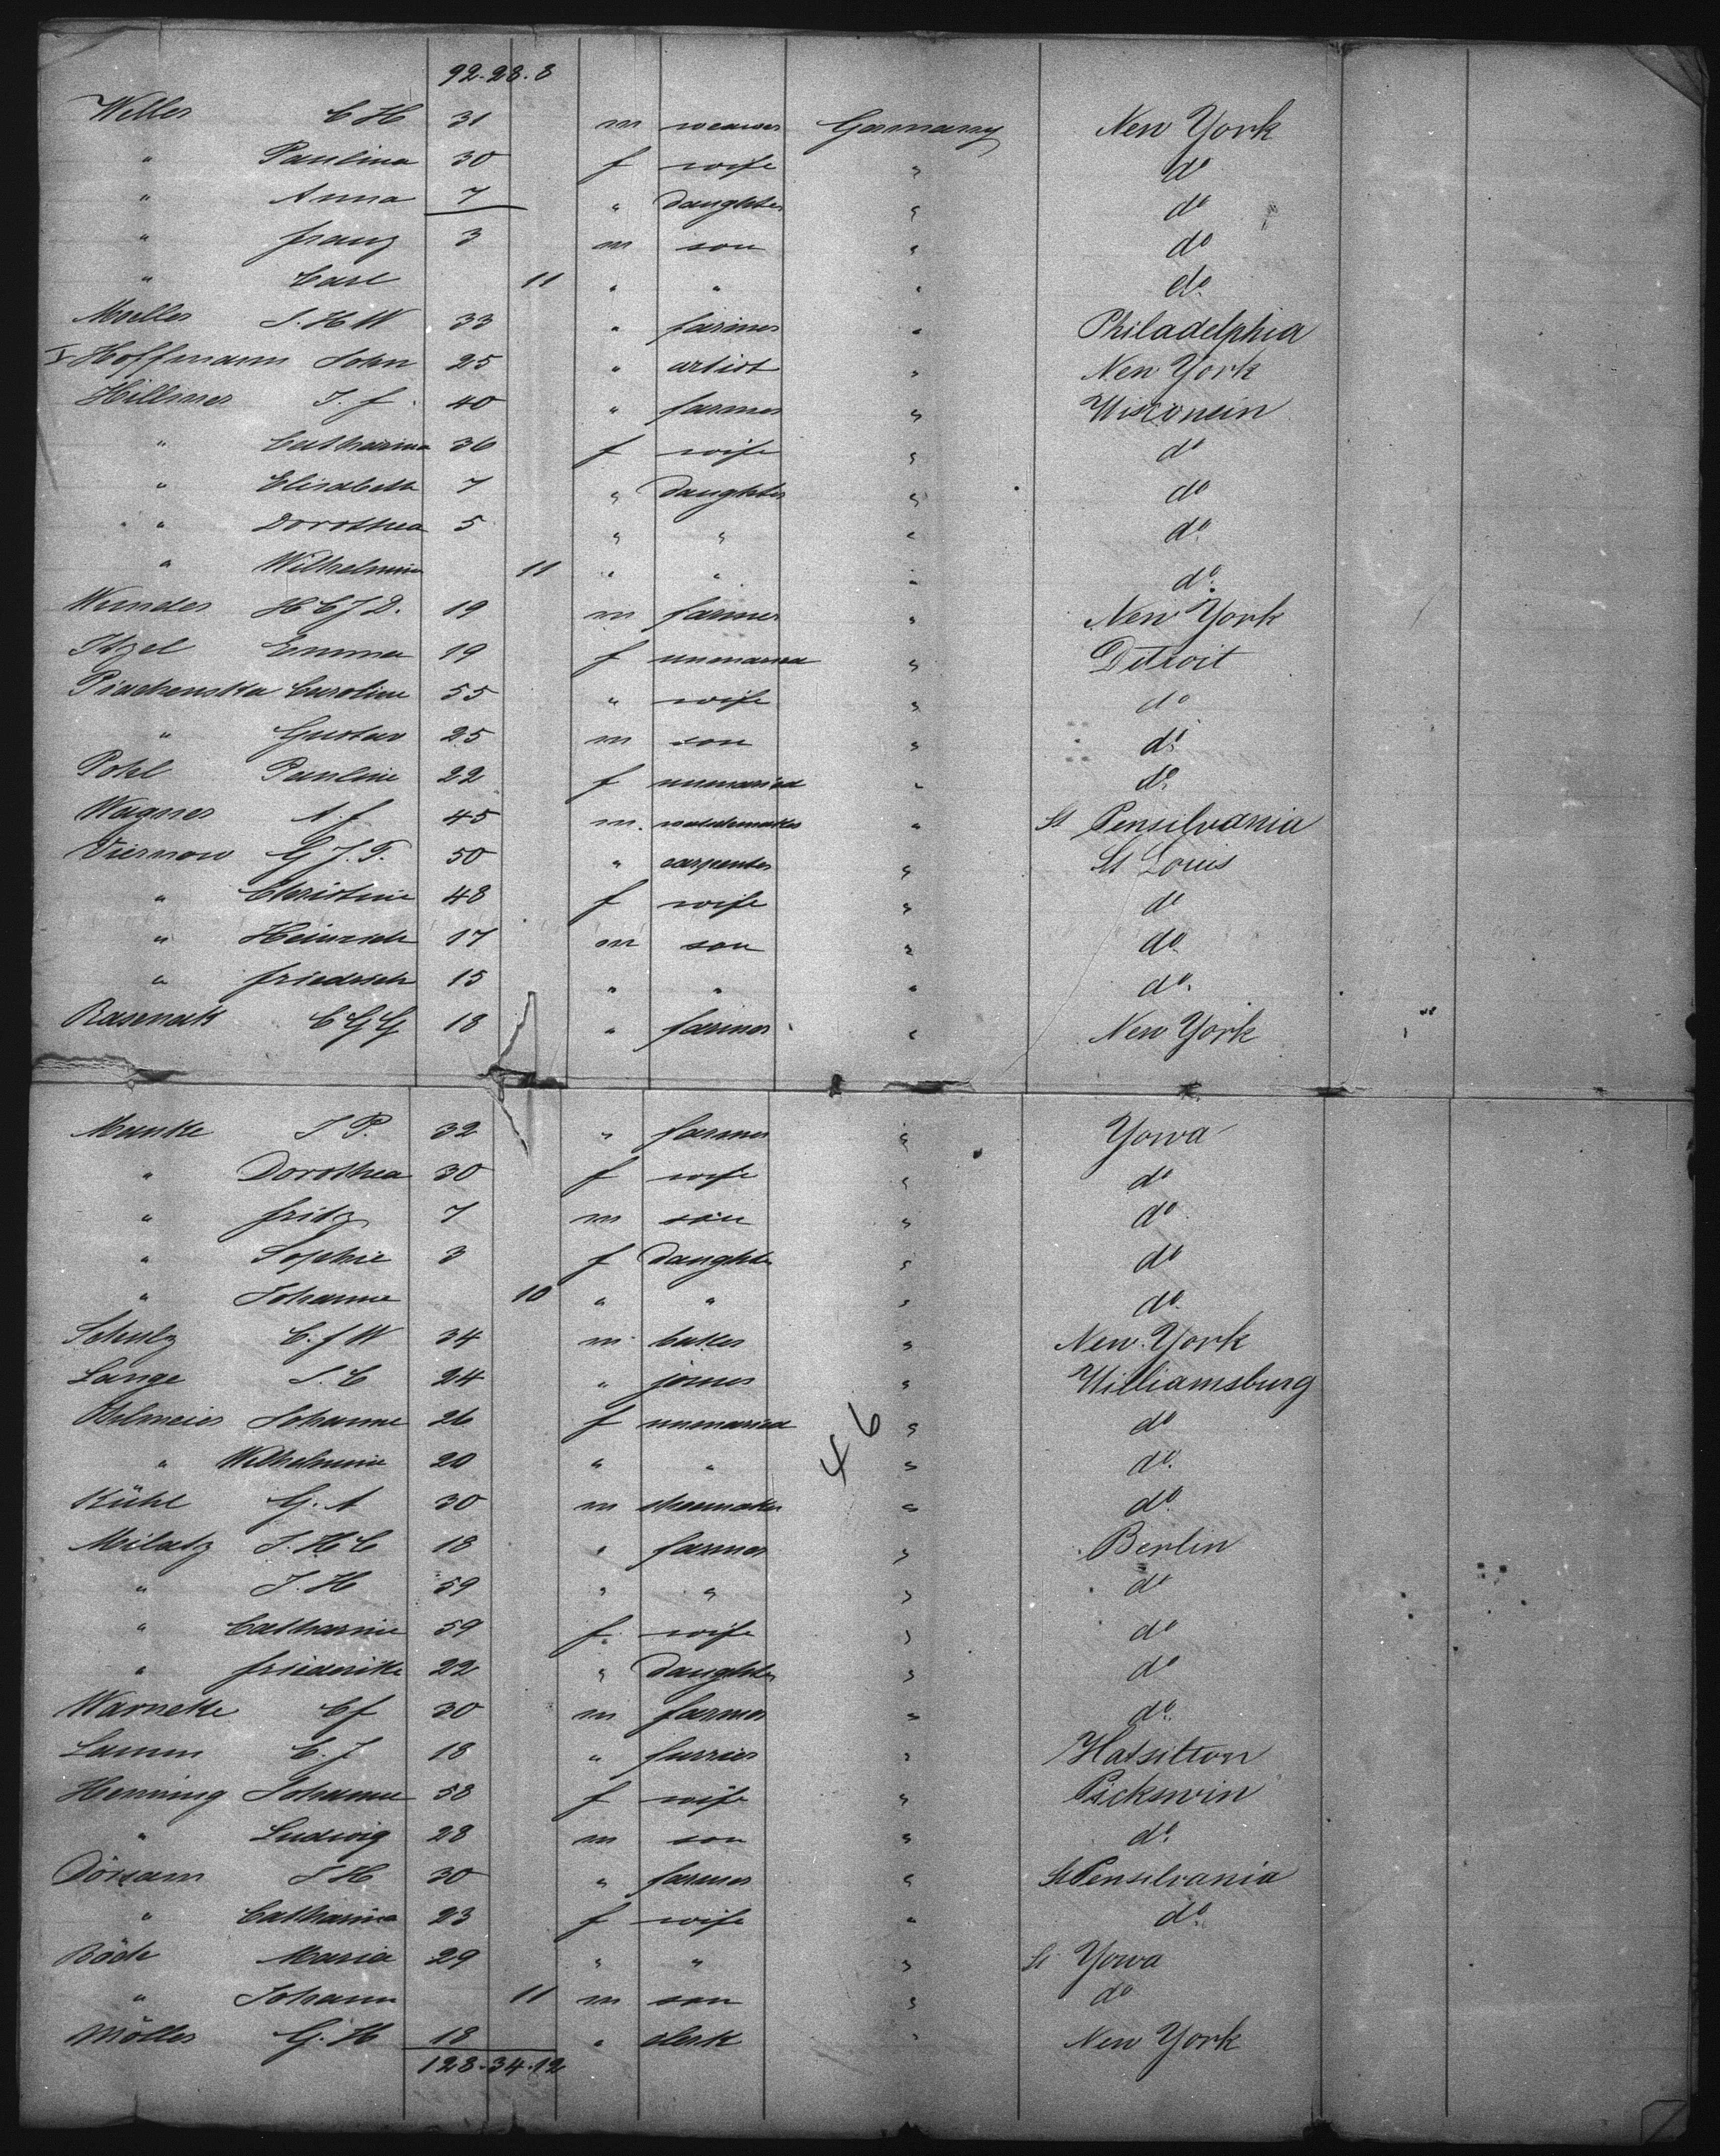 92. 28. 8
Weller C H 31 m weawer Germany New York
" Paulina 30 f wife " do
" Anna 7 " daughter " do
" franz 3 m son " do
" Carl 11 " " " do
Moeller J. H W 33 " farmer " Philadelphia
Hoffmann John 25 " artist " New York
Hillmer J. f. 40 " farmer " Wisconsin
" Catharina 36 f wife " do
" Elisabeth 7 " daughter " do
" Dorothea 5 " " " do
" Wilhelmine 11 " " " do
Wunder H C J D. 19 m farmer " New York
Itzel Emma 19 f unmaried " Ditroit
Piachenska Caroline 55 " wife " do
" Gustav 25 m son " do
Pohl Pauline 22 f unmaried " do
Wagner A. f. 45 m. watchmaker " St Pensilvania
Viernow G J. F. 50 " carpenter " St Louis
" Christine 48 f wife " do
" Heinrich 17 m son " do
" friedrich 15 " " " do.
Rasenack C G G 18 " farmer " New York
Munke J P. 32 " farmer " Yowa
" Dorothea 30 f wife " do
" fritz 7 m son " do
" Sophie 3 f daughter " do
" Johanne 10 " " " do.
Schulz C. f W 34 m baker " New York
Lange J. C 24 " joiner " Williamsburg
Johanne 26 f unmaried " do
" Wilhelmine 20 " " " do.
46
Kühl G. A 30 m shoemaker " do
Milatz J. H C 18 " farmer " Berlin
" J. H 59 " " " do
" Catharine 59 f. wife " do
" friederike 22 " daughter " do
Warneke C f 30 m farmer " do.
Lamm C. J 18 " furrier " Hatsilton
Henning Johanne 58 f wife " Pickswin
" Ludwig 28 m son " do.
Dörsam J H 30 " farmer " St Pensilvania
" Catharina 23 f wife " do.
Böck Maria 29 " " " St Yowa
" Johann 11 m son " do
Möller G. H 18 " clerk " New York
128. 34. 12